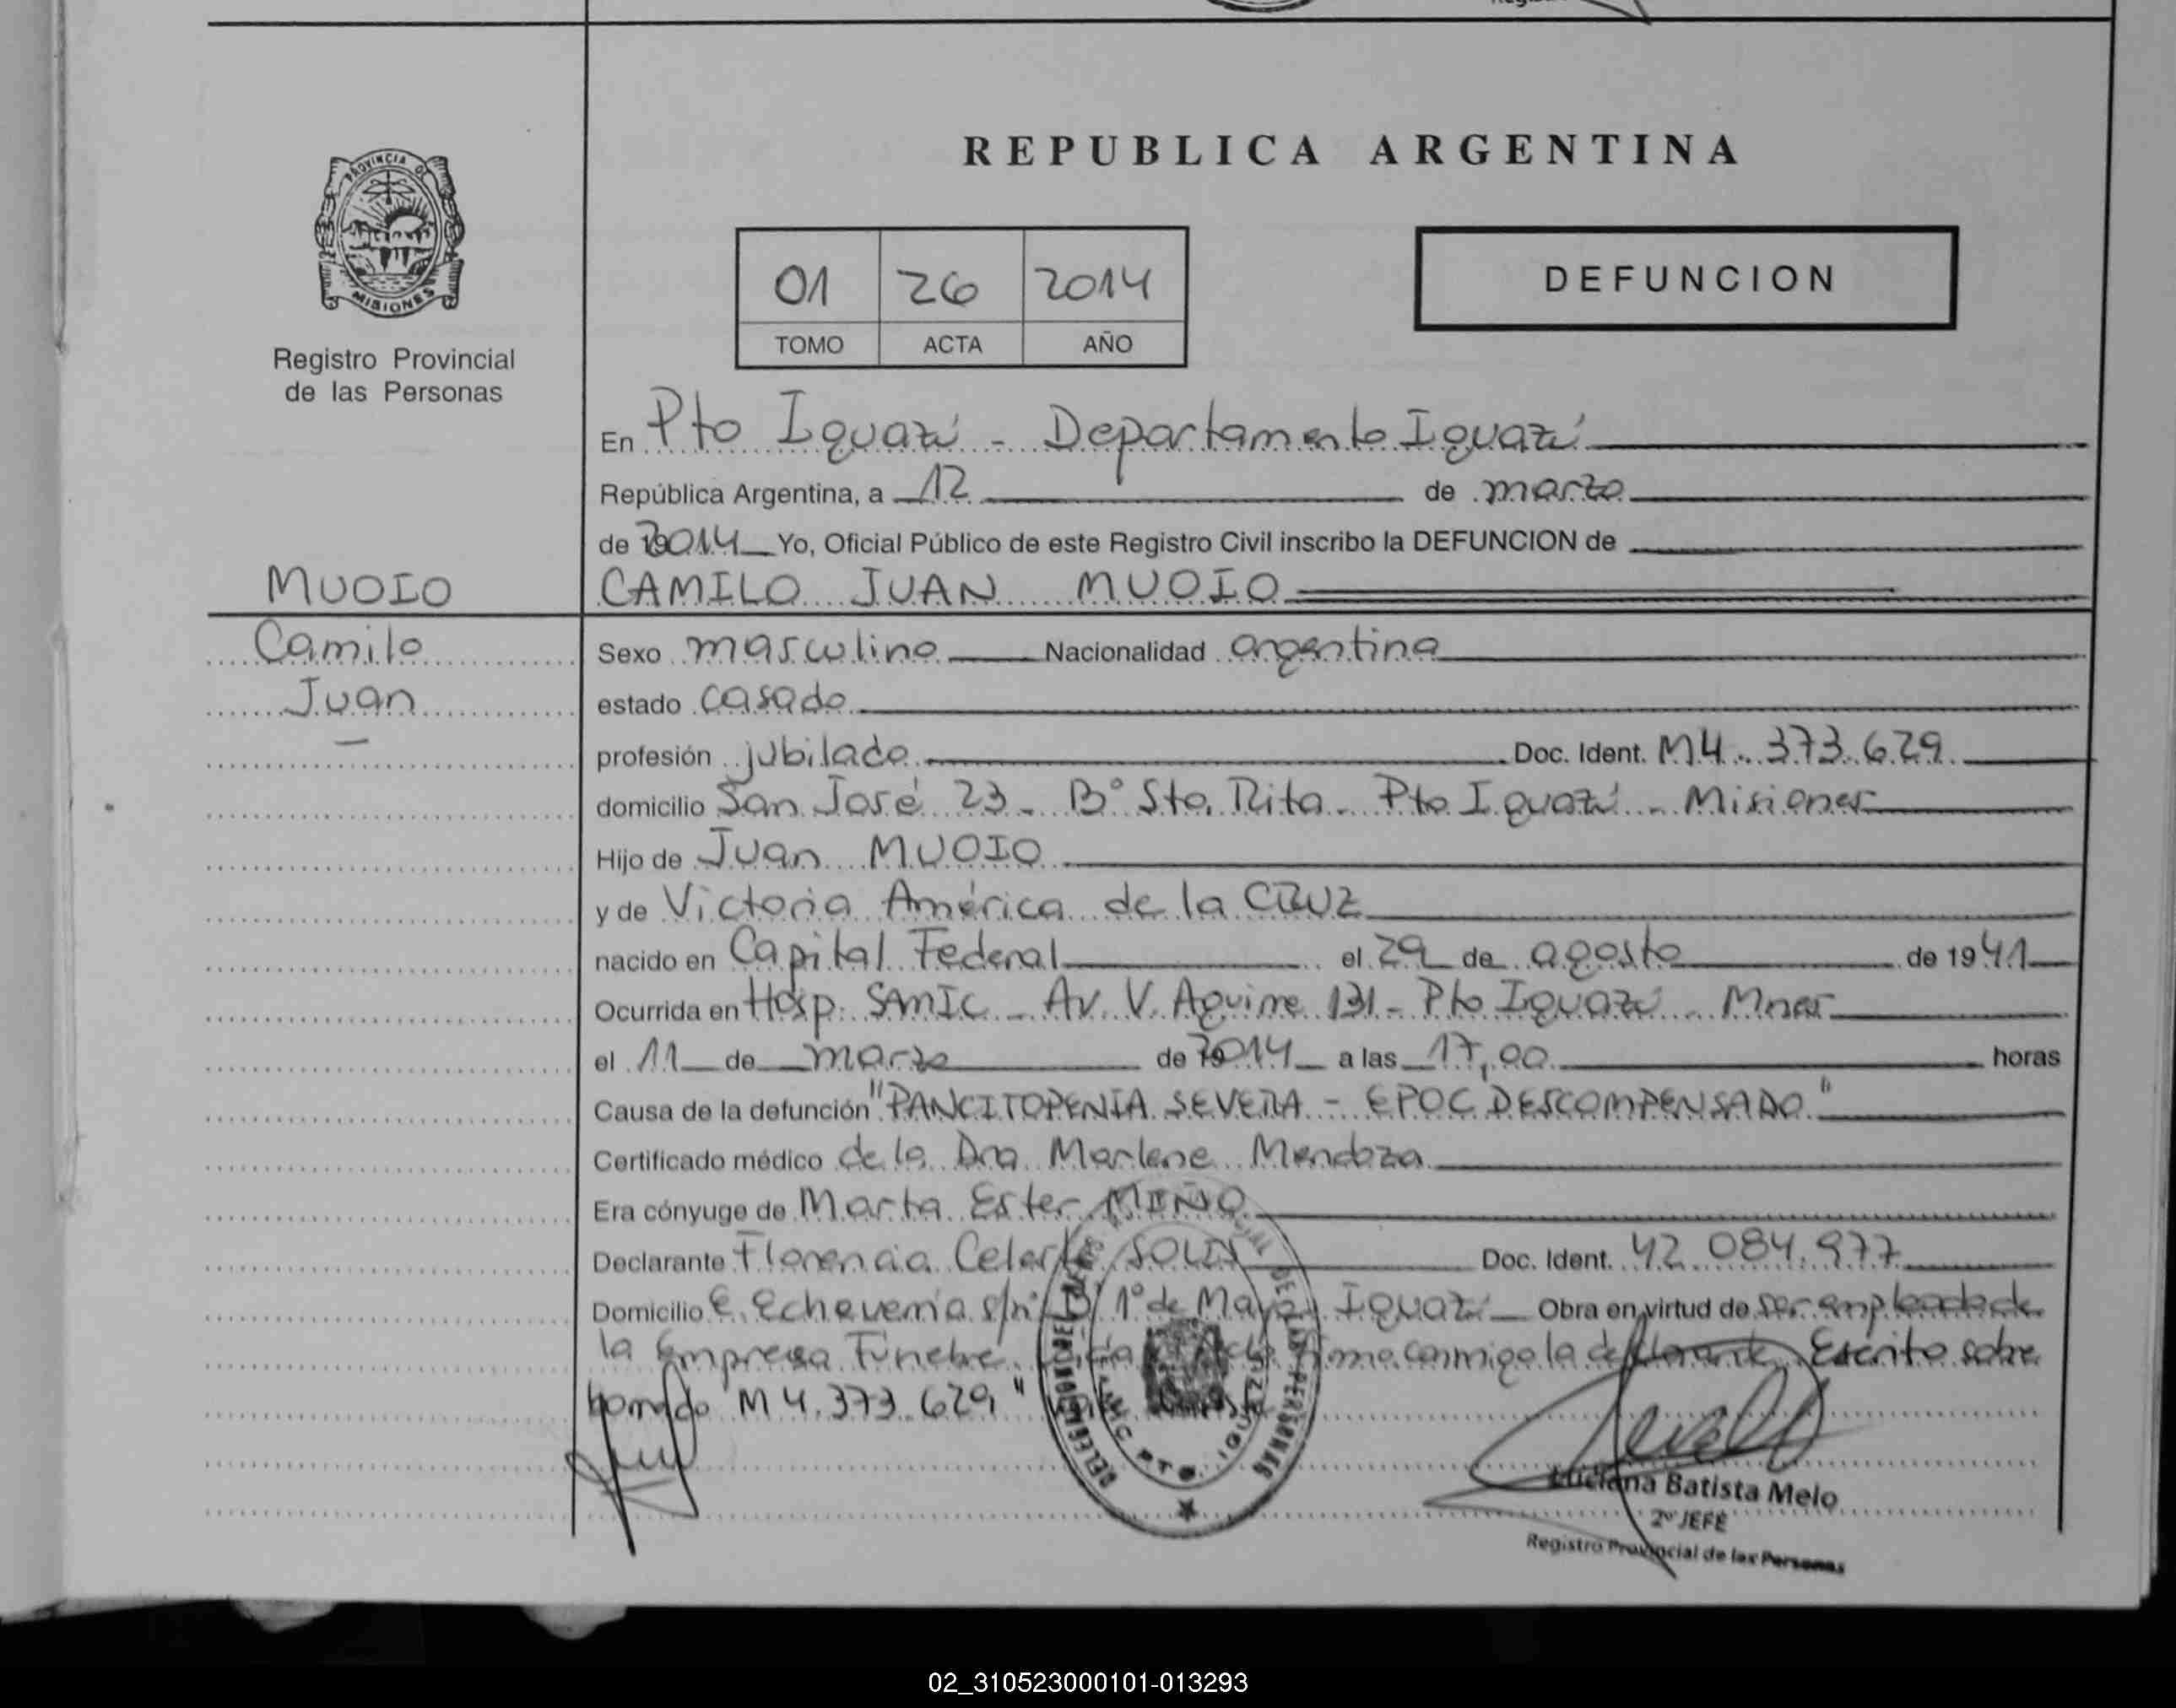 REPUBLICA ARGENTINA
PROVINCIA DE
MISIONES
Registro Provincial
de las Personas
01 26 2014
TOMO ACTA AÑO
DEFUNCION
En Pto Iguazú - Departamento Iguazú
República Argentina, a 12 de marzo
de 2014 Yo, Oficial Público de este Registro Civil inscribo la DEFUNCION de
MUOIO CAMILO JUAN MUOIO
Camilo Sexo masculino Nacionalidad argentina
Juan estado casado
profesión jubilado Doc. Ident. M4.373.629
domicilio San José 23 - B° Sta. Rita - Pto Iguazú - Misiones
Hijo de Juan MUOIO
y de Victoria América de la CRUZ
nacido en Capital Federal el 29 de agosto de 1941
Ocurrida en Hosp. SAMIC - Av. V. Aguirre 131 - Pto Iguazú - Mnes
el 11 de marzo de 2014 a las 17,00 horas
Causa de la defunción "PANCITOPENIA SEVERA - EPOC DESCOMPENSADO"
Certificado médico de la Dra Marlene Mendoza
Era cónyuge de Marta Ester MIÑO
Declarante Florencia Celeste SOLIS Doc. Ident. 42.084.977
Domicilio E. Echeverría s/n° B° 1° de Mayo Iguazú Obra en virtud de ser empleada de
la Empresa Fúnebre firma conmigo la declarante. Escrito sobre
borrado "M4.373.629"
PTO. IGUAZU
Luciana Batista Melo
2° JEFE
Registro Provincial de las Personas
02_310523000101-013293